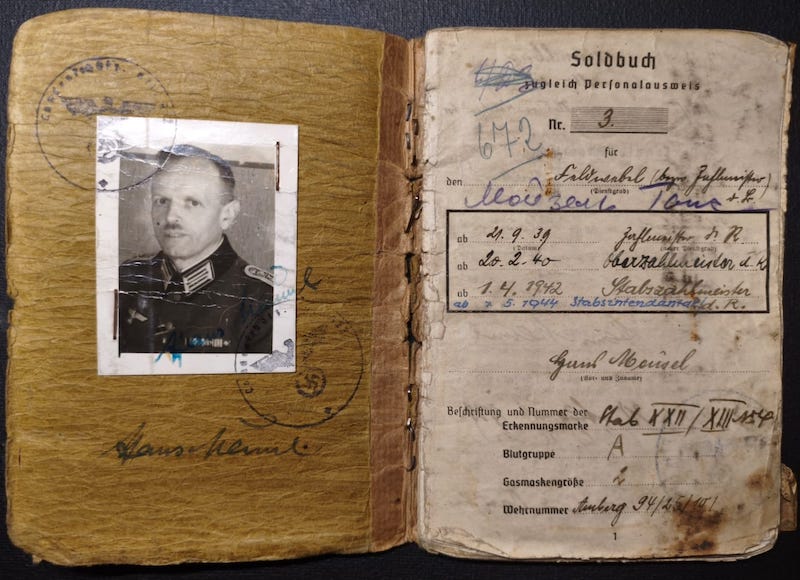 Hans Meusel
Soldbuch
zugleich Personalausweis
672
Nr. 3.
für
den Feldwebel
(Dienstgrad)
ab 21.9.39 Zahlmeister d. R
(Datum) (neuer Dienstgrad)
ab 20.2.40 Oberzahlmeister d. R
ab 1.4.1942 Stabszahlmeister
ab 5.1944 Stabsintendant d. R.
Hans Meusel
(Vor- und Zuname)
Beschriftung und Nummer der
Erkennungsmarke Stab XXII / XIII
Blutgruppe A
Gasmaskengröße 2
Wehrnummer Amberg 94/25/10/1
1